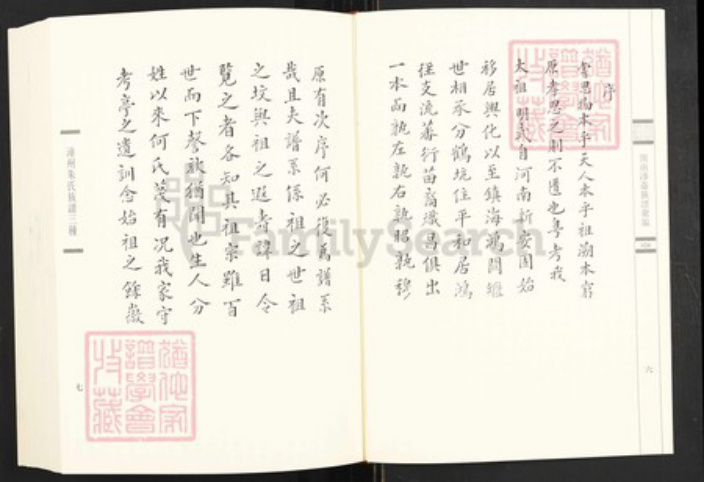 序
嘗思物本乎天人本乎祖溯本窮
原孝思之則不匱也粵考我
太祖 自河南新安固始
移居興化以至鎮海鴻
世相承分鶴坑住平和居鴻
徑支流蕃衍苗裔熾昌俱出
一本而孰左孰右孰昭孰穆
六
原有次序何必復為譜系
哉且夫譜系係祖之世祖
之墳與祖之遐寿諱日令
覽之者各知其祖宗雖百
世而下馨欬猶聞也生人分
姓以來何氏蔑有況我家守
考亭之遺訓念始祖之餘徽
漳州朱氏族譜三種
七
FamilySearch